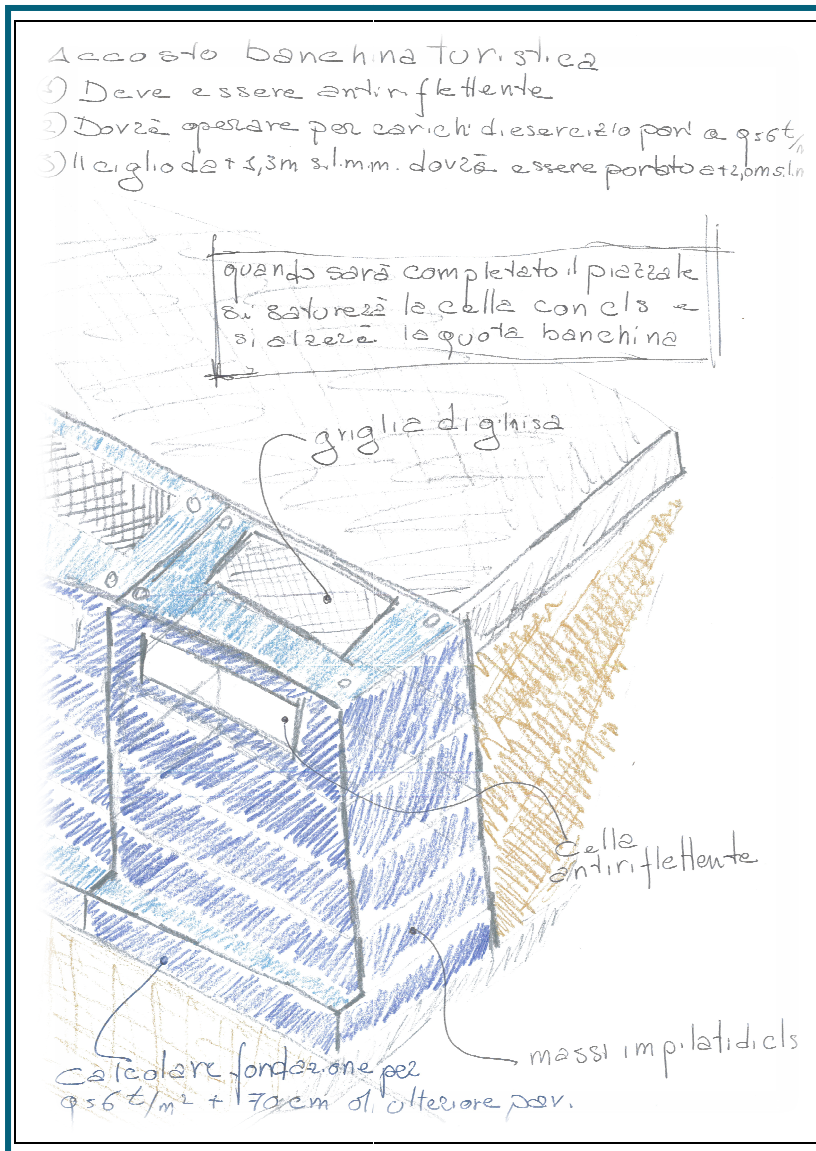 Accosto banchina turistica
1) Deve essere antiriflettente
2) Dovrà operare per carichi di esercizio pari a q=6 t/
3) Il ciglio da +1,3m s.l.m.m. dovrà essere portato a +2,0m s.l.m
quando sarà completato il piazzale
si saturerà la cella con cls e
si alzerà la quota banchina
griglia di ghisa
cella
antiriflettente
massi impilati di cls
Calcolare fondazione per
q=6 t/m² + 70 cm di ulteriore pav.